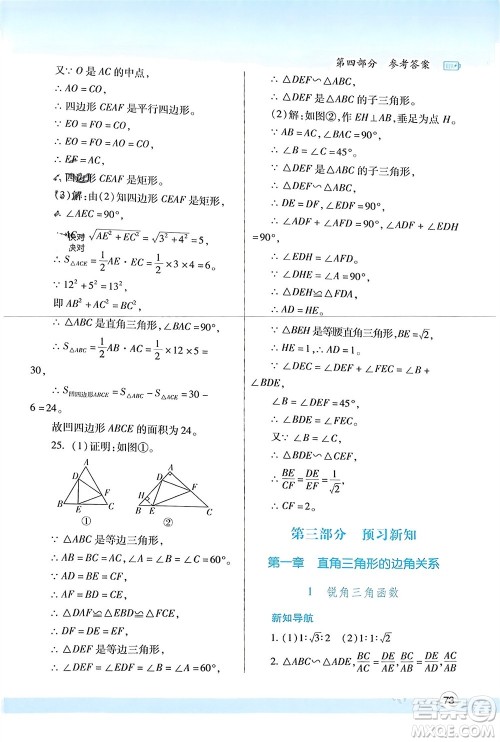 第四部分 参考答案
又∵O 是 AC 的中点,
∴AO=CO,
∴四边形 CEAF 是平行四边形,
∵EO=FO=AO=CO,
∴EF=AC,
∴四边形 CEAF 是矩形.
(3)解:由(2)知四边形 CEAF 是矩形,
∴∠AEC=90°,
∴AC=√(AE²+EC²)=√(3²+4²)=5,
快对
决对
∴S△ACE=1/2 AE·EC=1/2×3×4=6,
∵12²+5²=13²,
即 AB²+AC²=BC²,
∴△ABC 是直角三角形,∠BAC=90°,
∴S△ABC=1/2 AB·AC=1/2×12×5=
30,
∴S凹四边形ABCE=S△ABC−S△ACE=30−
6=24.
故凹四边形 ABCE 的面积为 24.
25. (1)证明:如图①.
A D F B E C
①
A D H F B E C
②
∵△ABC 是等边三角形,
∴AB=BC=AC,
∵AD=BE=CF,
∴BD=CE=AF,
∴△DAF≌△EBD≌△FCE,
∴DF=DE=EF,
∴△DEF 是等边三角形,
∴∠DEF=∠EDF=∠EFD=60°,
又∵∠A=∠B=∠C=60°,
∴∠DEF=∠B,∠EDF=∠A,∠DFE=
∠C,
∴△DEF∽△ABC,
∴△DEF 是△ABC 的子三角形.
(2)解:如图②,作 EH⊥AB,垂足为点 H.
∵AB=AC,∠BAC=90°,
∴∠B=∠C=45°,
∵△DEF 是△ABC 的子三角形,
∴△DEF∽△ABC,
∴∠EDF=90°,DE=DF,
∴∠ADF+∠AFD=∠ADF+∠EDH
=90°,
∴∠EDH=∠AFD,
∵∠A=∠DHE=90°,
∴△EDH≌△FDA,
∴AD=HE.
∵△BHE 是等腰直角三角形,BE=√2,
∴HE=1=AD,
∵∠BEF=∠C+∠EFC=∠DEF+
∠BDE,
∠DEF=45°,
∴∠BED=∠EFC,
又∵∠B=∠C,
∴△BDE∽△CEF,
∴BE/CF=DE/EF=1/√2,
∴CF=2.
第三部分 预习新知
第一章 直角三角形的边角关系
1 锐角三角函数
新知导航
1. (1)1∶√3∶2 (2)1∶1∶√2
2. △ABC∽△DEF,BC/AC=EF/DF,BC/AB=EF/DE,
73